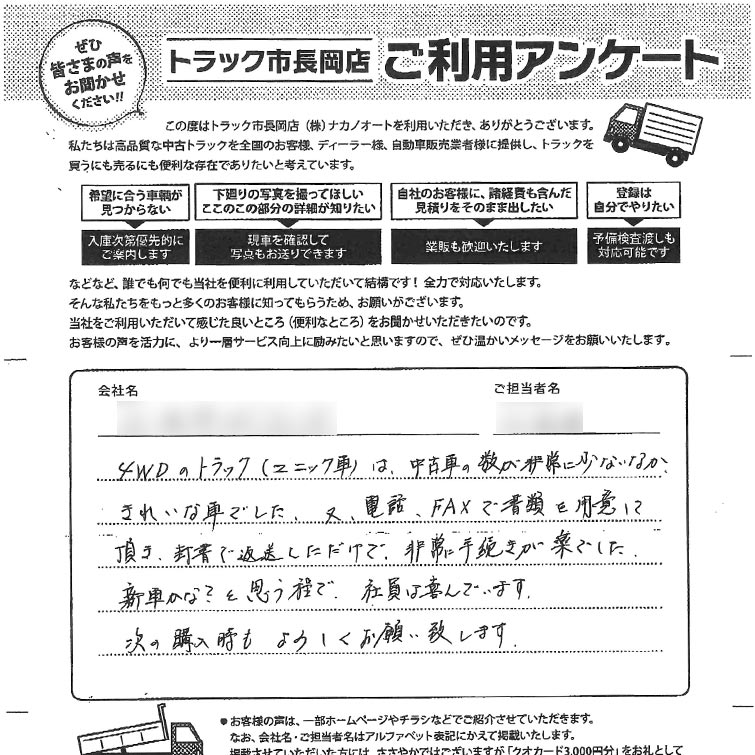 ぜひ
皆さまの声を
お聞かせ
ください!!
トラック市長岡店 ご利用アンケート
この度はトラック市長岡店(株)ナカノオートを利用いただき、ありがとうございます。
私たちは高品質な中古トラックを全国のお客様、ディーラー様、自動車販売業者様に提供し、トラックを
買うにも売るにも便利な存在でありたいと考えています。
希望に合う車輌が
見つからない
入庫次第優先的に
ご案内します
下廻りの写真を撮ってほしい
ここのこの部分の詳細が知りたい
現車を確認して
写真もお送りできます
自社のお客様に、諸経費も含んだ
見積りをそのまま出したい
業販も歓迎いたします
登録は
自分でやりたい
予備検査渡しも
対応可能です
などなど、誰でも何でも当社を便利に利用していただいて結構です!全力で対応いたします。
そんな私たちをもっと多くのお客様に知ってもらうため、お願いがございます。
当社をご利用いただいて感じた良いところ(便利なところ)をお聞かせいただきたいのです。
お客様の声を活力に、より一層サービス向上に励みたいと思いますので、ぜひ温かいメッセージをお願いいたします。
会社名
ご担当者名
4WDのトラック(ユニック車)は、中古車の数が非常に少ないなか、
きれいな車でした。又、電話、FAXで書類を用意して
頂き、封書で返送しただけで、非常に手続きが楽でした。
新車かな?と思う程で、社員は喜んでいます。
次の購入時もよろしくお願い致します。
●お客様の声は、一部ホームページやチラシなどでご紹介させていただきます。
なお、会社名・ご担当者名はアルファベット表記にかえて掲載いたします。
掲載させていただいた方には、ささやかではございますが「クオカード3,000円分」をお礼として